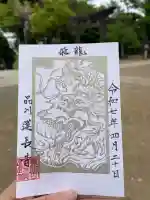 飛龍
令和七年四月二十日
品川蓮長寺